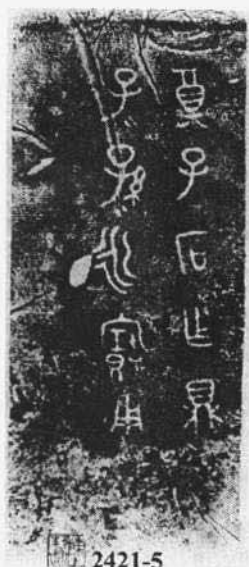 奠子石乍鼎
子孫永寶用
2421-5